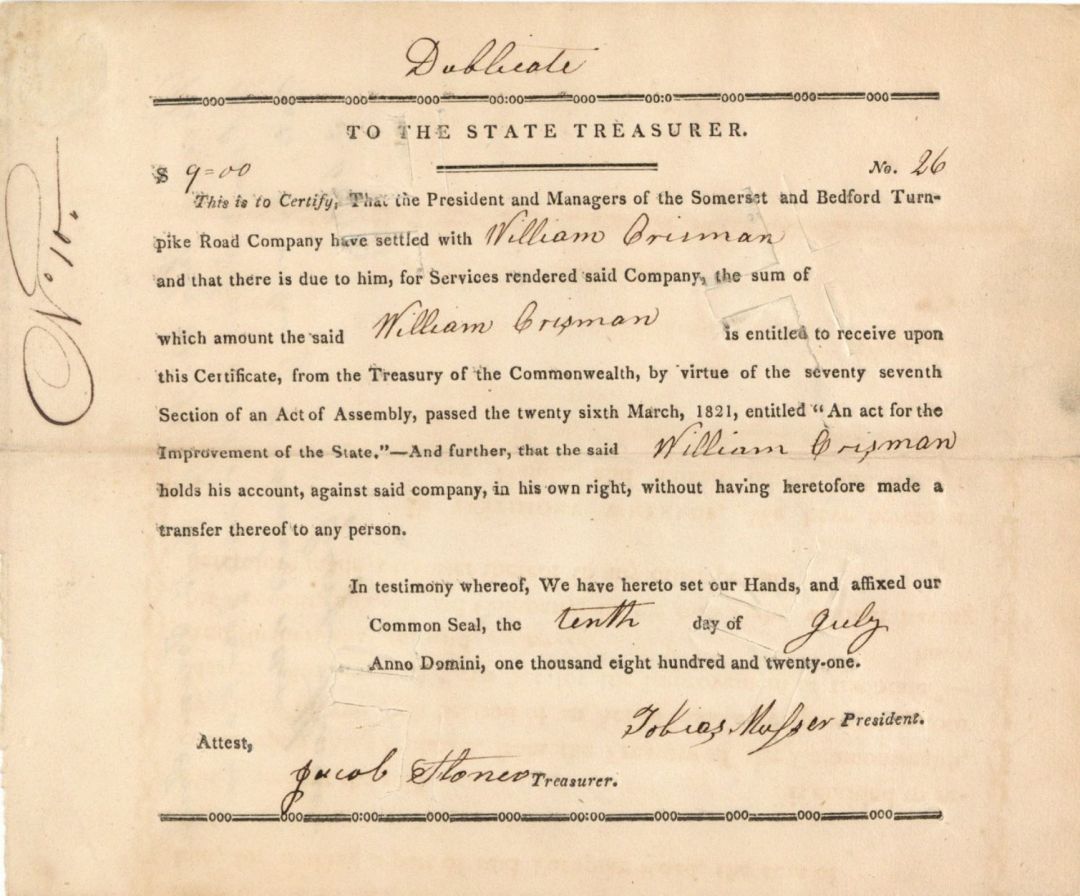 Dublicate
TO THE STATE TREASURER.
$ 9=00 No. 26
This is to Certify, That the President and Managers of the Somerset and Bedford Turn-
pike Road Company have settled with William Crisman
and that there is due to him, for Services rendered said Company, the sum of
which amount the said William Crisman is entitled to receive upon
this Certificate, from the Treasury of the Commonwealth, by virtue of the seventy seventh
Section of an Act of Assembly, passed the twenty sixth March, 1821, entitled “An act for the
Improvement of the State.”—And further, that the said William Crisman
holds his account, against said company, in his own right, without having heretofore made a
transfer thereof to any person.
In testimony whereof, We have hereto set our Hands, and affixed our
Common Seal, the tenth day of July
Anno Domini, one thousand eight hundred and twenty-one.
Tobias Musser President.
Attest,
Jacob Stoner Treasurer.
No 10.